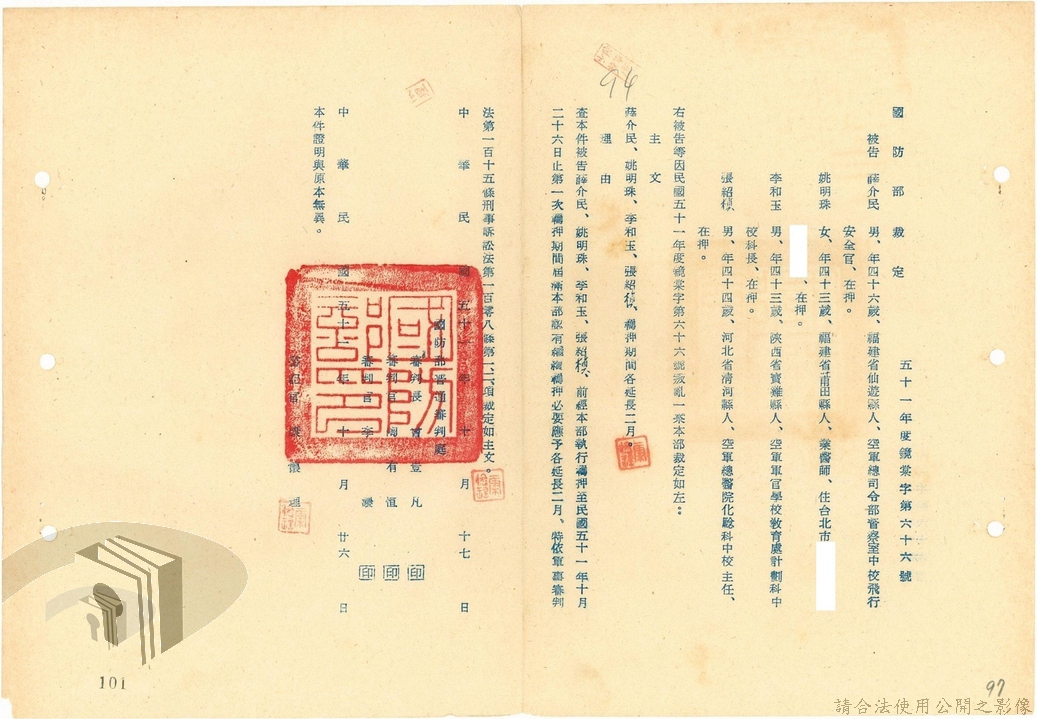 94
國防部裁定
五十一年度鏡棠字第六十六號
被告 薛介民 男、年四十六歲、福建省仙遊縣人、空軍總司令部督察室中校飛行
安全官、在押。
姚明珠 女、年四十三歲、福建省莆田縣人、業醫師、住台北市
、在押。
李和玉 男、年四十三歲、陝西省寶雞縣人、空軍軍官學校教育處計劃科中
校科長、在押。
張紹楨 男、年四十四歲、河北省清河縣人、空軍總醫院化驗科中校主任、
在押。
右被告等因民國五十一年度鏡棠字第六十六號叛亂一案本部裁定如左:
主文
薛介民、姚明珠、李和玉、張紹楨、羈押期間各延長二月。
理由
查本件被告薛介民、姚明珠、李和玉、張紹楨、前經本部執行羈押至民國五十一年十月
二十六日止第一次羈押期間屆滿本部認有繼續羈押必要應予各延長二月、特依軍事審判
法第一百十五條刑事訴訟法第一百零八條第一、二項裁定如主文。
中華民國五十一年十月十七日
國防部普通審判庭
審判長 曹壹凡 印
審判官 周有洹 印
審判官 李 印
中華民國五十一年十月廿六日
本件證明與原本無異。
書記官
國防部印
101
97
請合法使用公開之影像